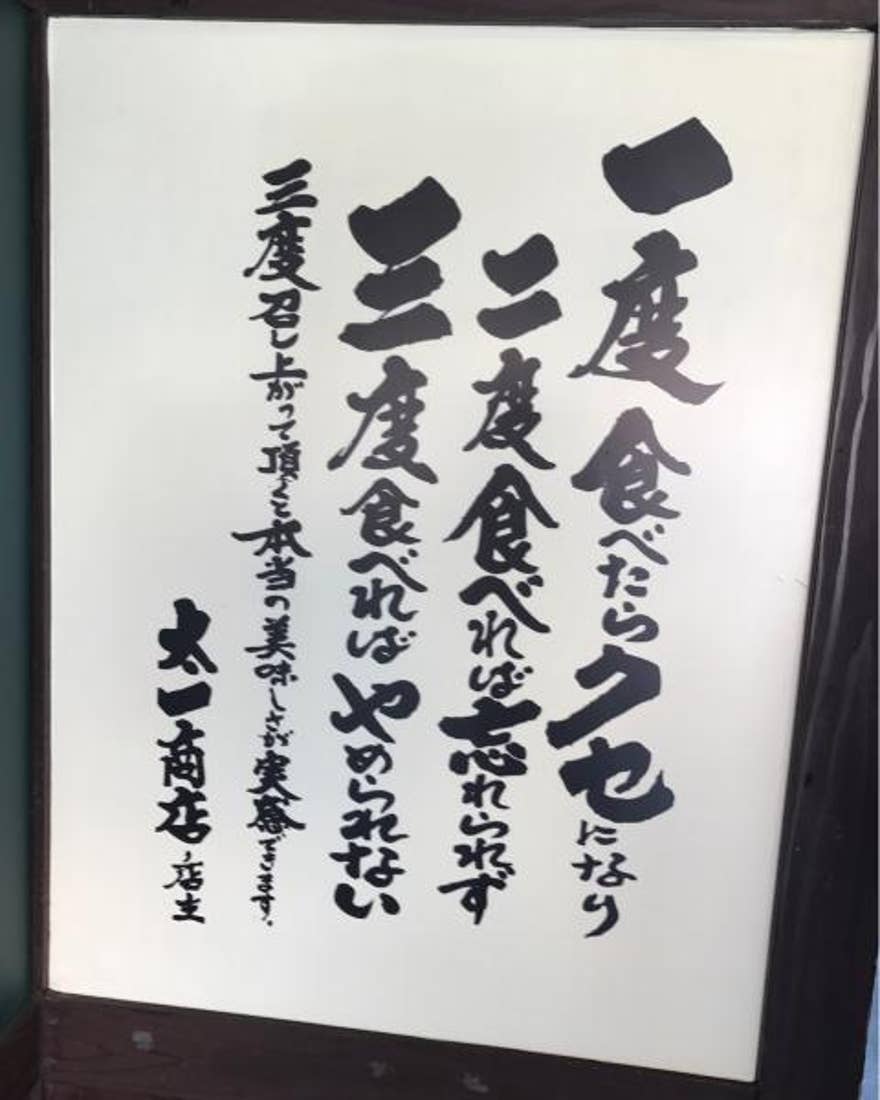 一度食べたらクセになり
二度食べれば忘れられず
三度食べればやめられない
三度召し上がって頂くと本当の美味しさが実感できます。
太一商店、店主